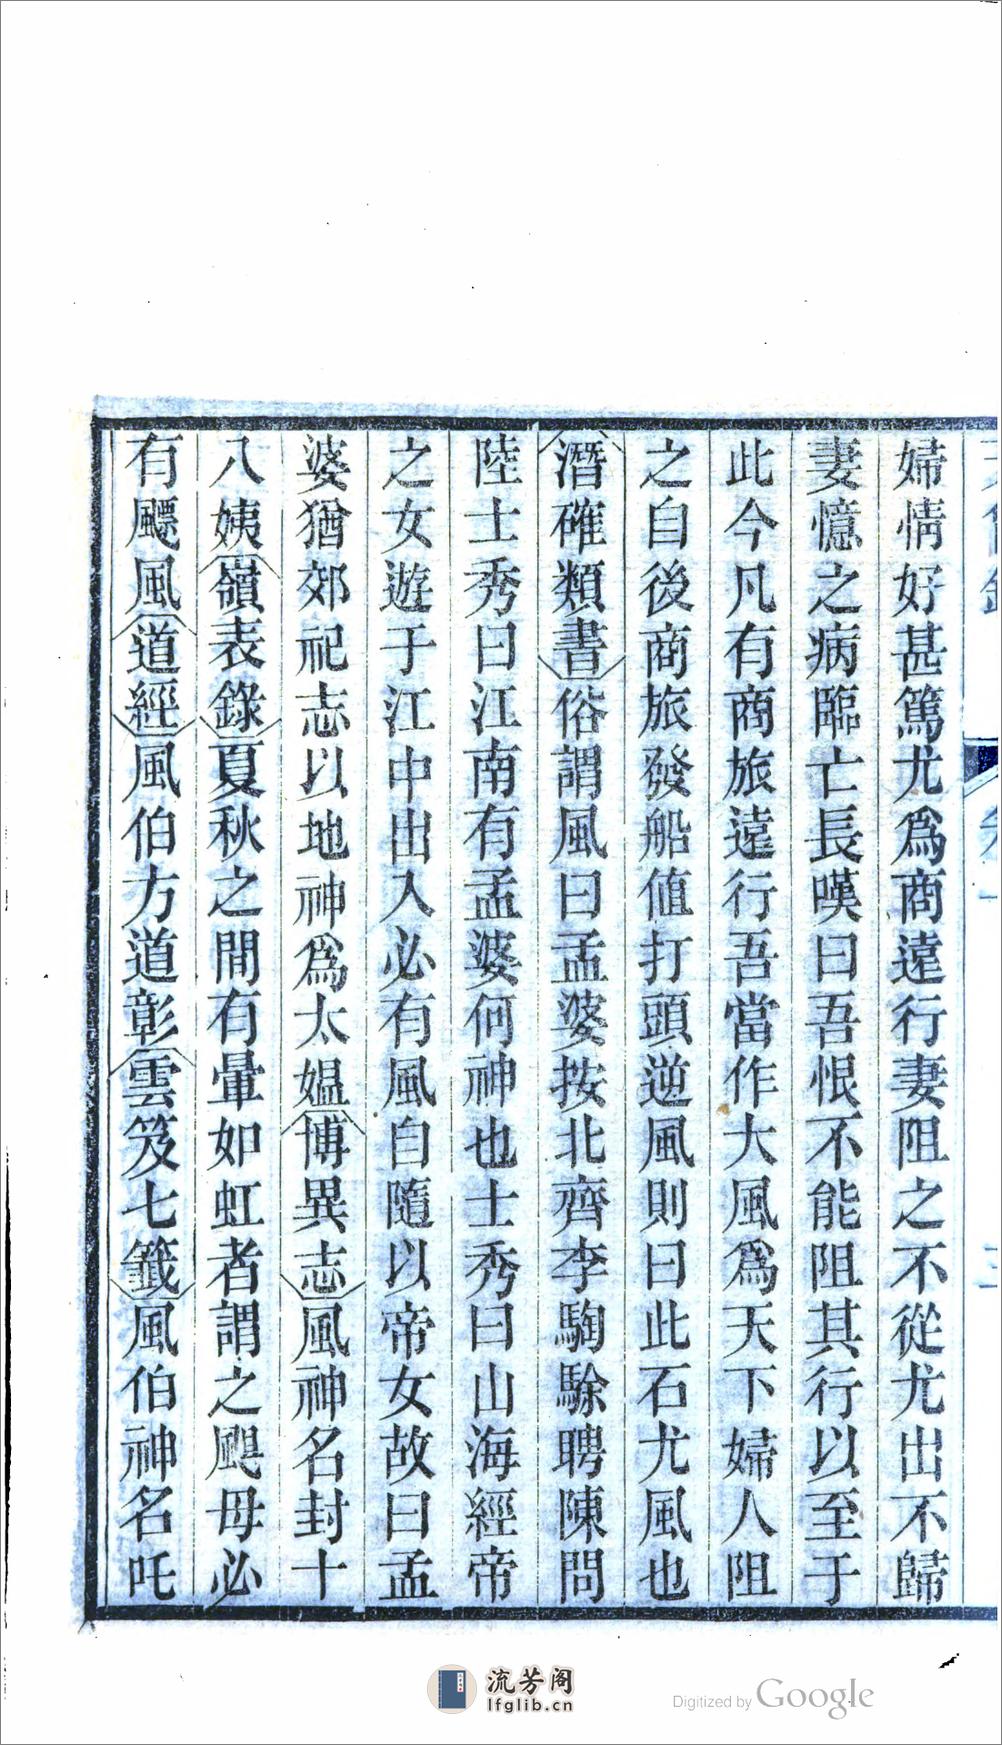 婦情好甚篤尤爲商遠行妻阻之不從尤出不歸
妻憶之病臨亡長嘆曰吾恨不能阻其行以至于
此今凡有商旅遠行吾當作大風爲天下婦人阻
之自後商旅發船值打頭逆風則曰此石尤風也
潛確類書俗謂風曰孟婆按北齊李騊駼聘陳問
陸士秀曰江南有孟婆何神也士秀曰山海經帝
之女遊于江中出入必有風自隨以帝女故曰孟
婆猶郊祀志以地神爲太媼博異志風神名封十
八姨嶺表錄夏秋之間有暈如虹者謂之颶母必
有颶風道經風伯方道彰雲笈七籤風伯神名吒
流芳阁
lfglib.cn
Digitized by Google